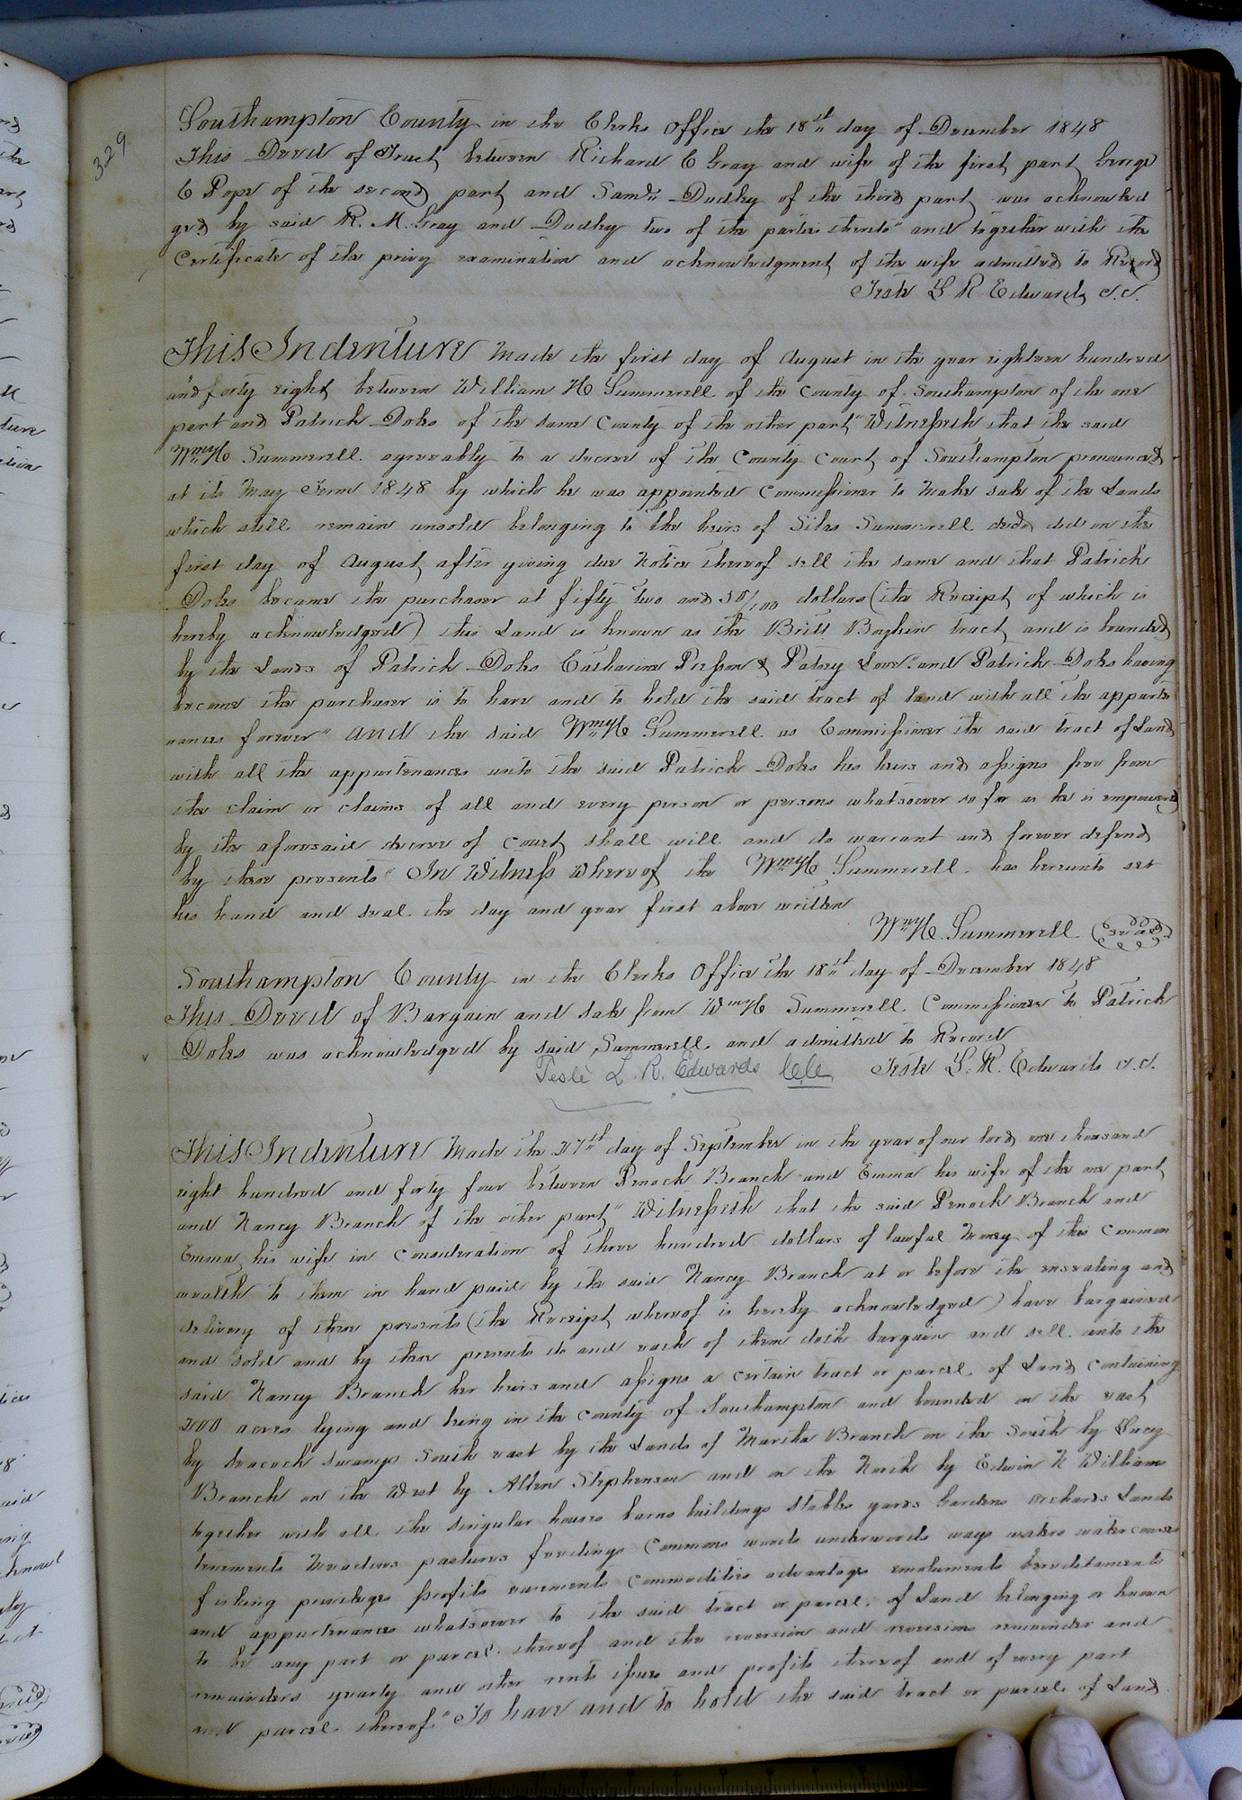 329
Southampton County in the Clerks Office the 18th day of December 1848
This Deed of Trust between Richard E Gray and wife of the first part George
E Pope of the second part and Saml Dudley of the third part was acknowled
ged by said R. M. Gray and Dudley two of the parties thereto" and together with the
Certificate of the privy examination and acknowledgment of the wife admitted to Record
Teste L R Edwards C.C.
This Indenture Made the first day of August in the year eighteen hundred
and forty eight between William H Summerell of the County of Southampton of the one
part and Patrick Doles of the same County of the other part" Witnesseth that the said
Wm H Summerell agreeably to a decree of the County Court of Southampton pronounced
at its May Term 1848 by which he was appointed Commissioner to Make sale of the Lands
which still remain unsold belonging to the heirs of Silas Summerell decd did on the
first day of August after giving due Notice thereof sell the same and that Patrick
Doles became the purchaser at fifty two and 50/100 dollars (the Receipt of which is
hereby acknowledged) this Land is known as the Britt tract and is bounded
by the Lands of Patrick Doles Catharine Persson & Patsey Love and Patrick Doles having
became the purchaser is to have and to hold the said tract of land with all the apparte
nances forever" and the said Wm H Summerell as Commissioner the said tract of Land
with all the appurtenances unto the said Patrick Doles his heirs and assigns free from
the claim or claims of all and every person or persons whatsoever so far as he is empowered
by the aforesaid decree of Court shall will and do warrant and forever defend
by these presents" In Witness Whereof the Wm H Summerell has hereunto set
his hand and seal the day and year first above written
Wm H Summerell (seal)
Southampton County in the Clerks Office the 18th day of December 1848
This Deed of Bargain and sale from Wm H Summerell Commissioner to Patrick
Doles was acknowledged by said Summerell and admitted to Record
Teste L. R. Edwards C.C.
Teste L. R. Edwards Clk
This Indenture Made the 27th day of September in the year of our lord one thousand
eight hundred and forty four between Penock Branch and Emma his wife of the one part
and Nancy Branch of the other part" Witnesseth that the said Penock Branch and
Emma his wife in consideration of three hundred dollars of lawful Money of this Common
wealth to them in hand paid by the said Nancy Branch at or before the ensealing and
delivery of these presents (the Receipt whereof is hereby acknowledged) have bargained
and sold and by these presents do and each of them doth bargain and sell unto the
said Nancy Branch her heirs and assigns a certain tract or parcel of Land containing
200 acres lying and being in the County of Southampton and bounded on the east
by Seacock Swamp South east by the Lands of Martha Branch on the South by Lucy
Branch on the West by Allen Stephenson and on the North by Edwin N William
together with all the singular houses barns buildings stables yards Gardens orchards Lands
tenements Meadows pastures feedings Commons woods underwoods ways waters watercourses
fishing privileges profits easements commodities advantages emoluments hereditaments
and appurtenances whatsoever to the said tract or parcel of Land belonging or known
to be any part or parcel thereof and the reversion and reversions remainder and
remainders yearly and other rents issues and profits thereof and of every part
and parcel thereof." To have and to hold the said tract or parcel of Land